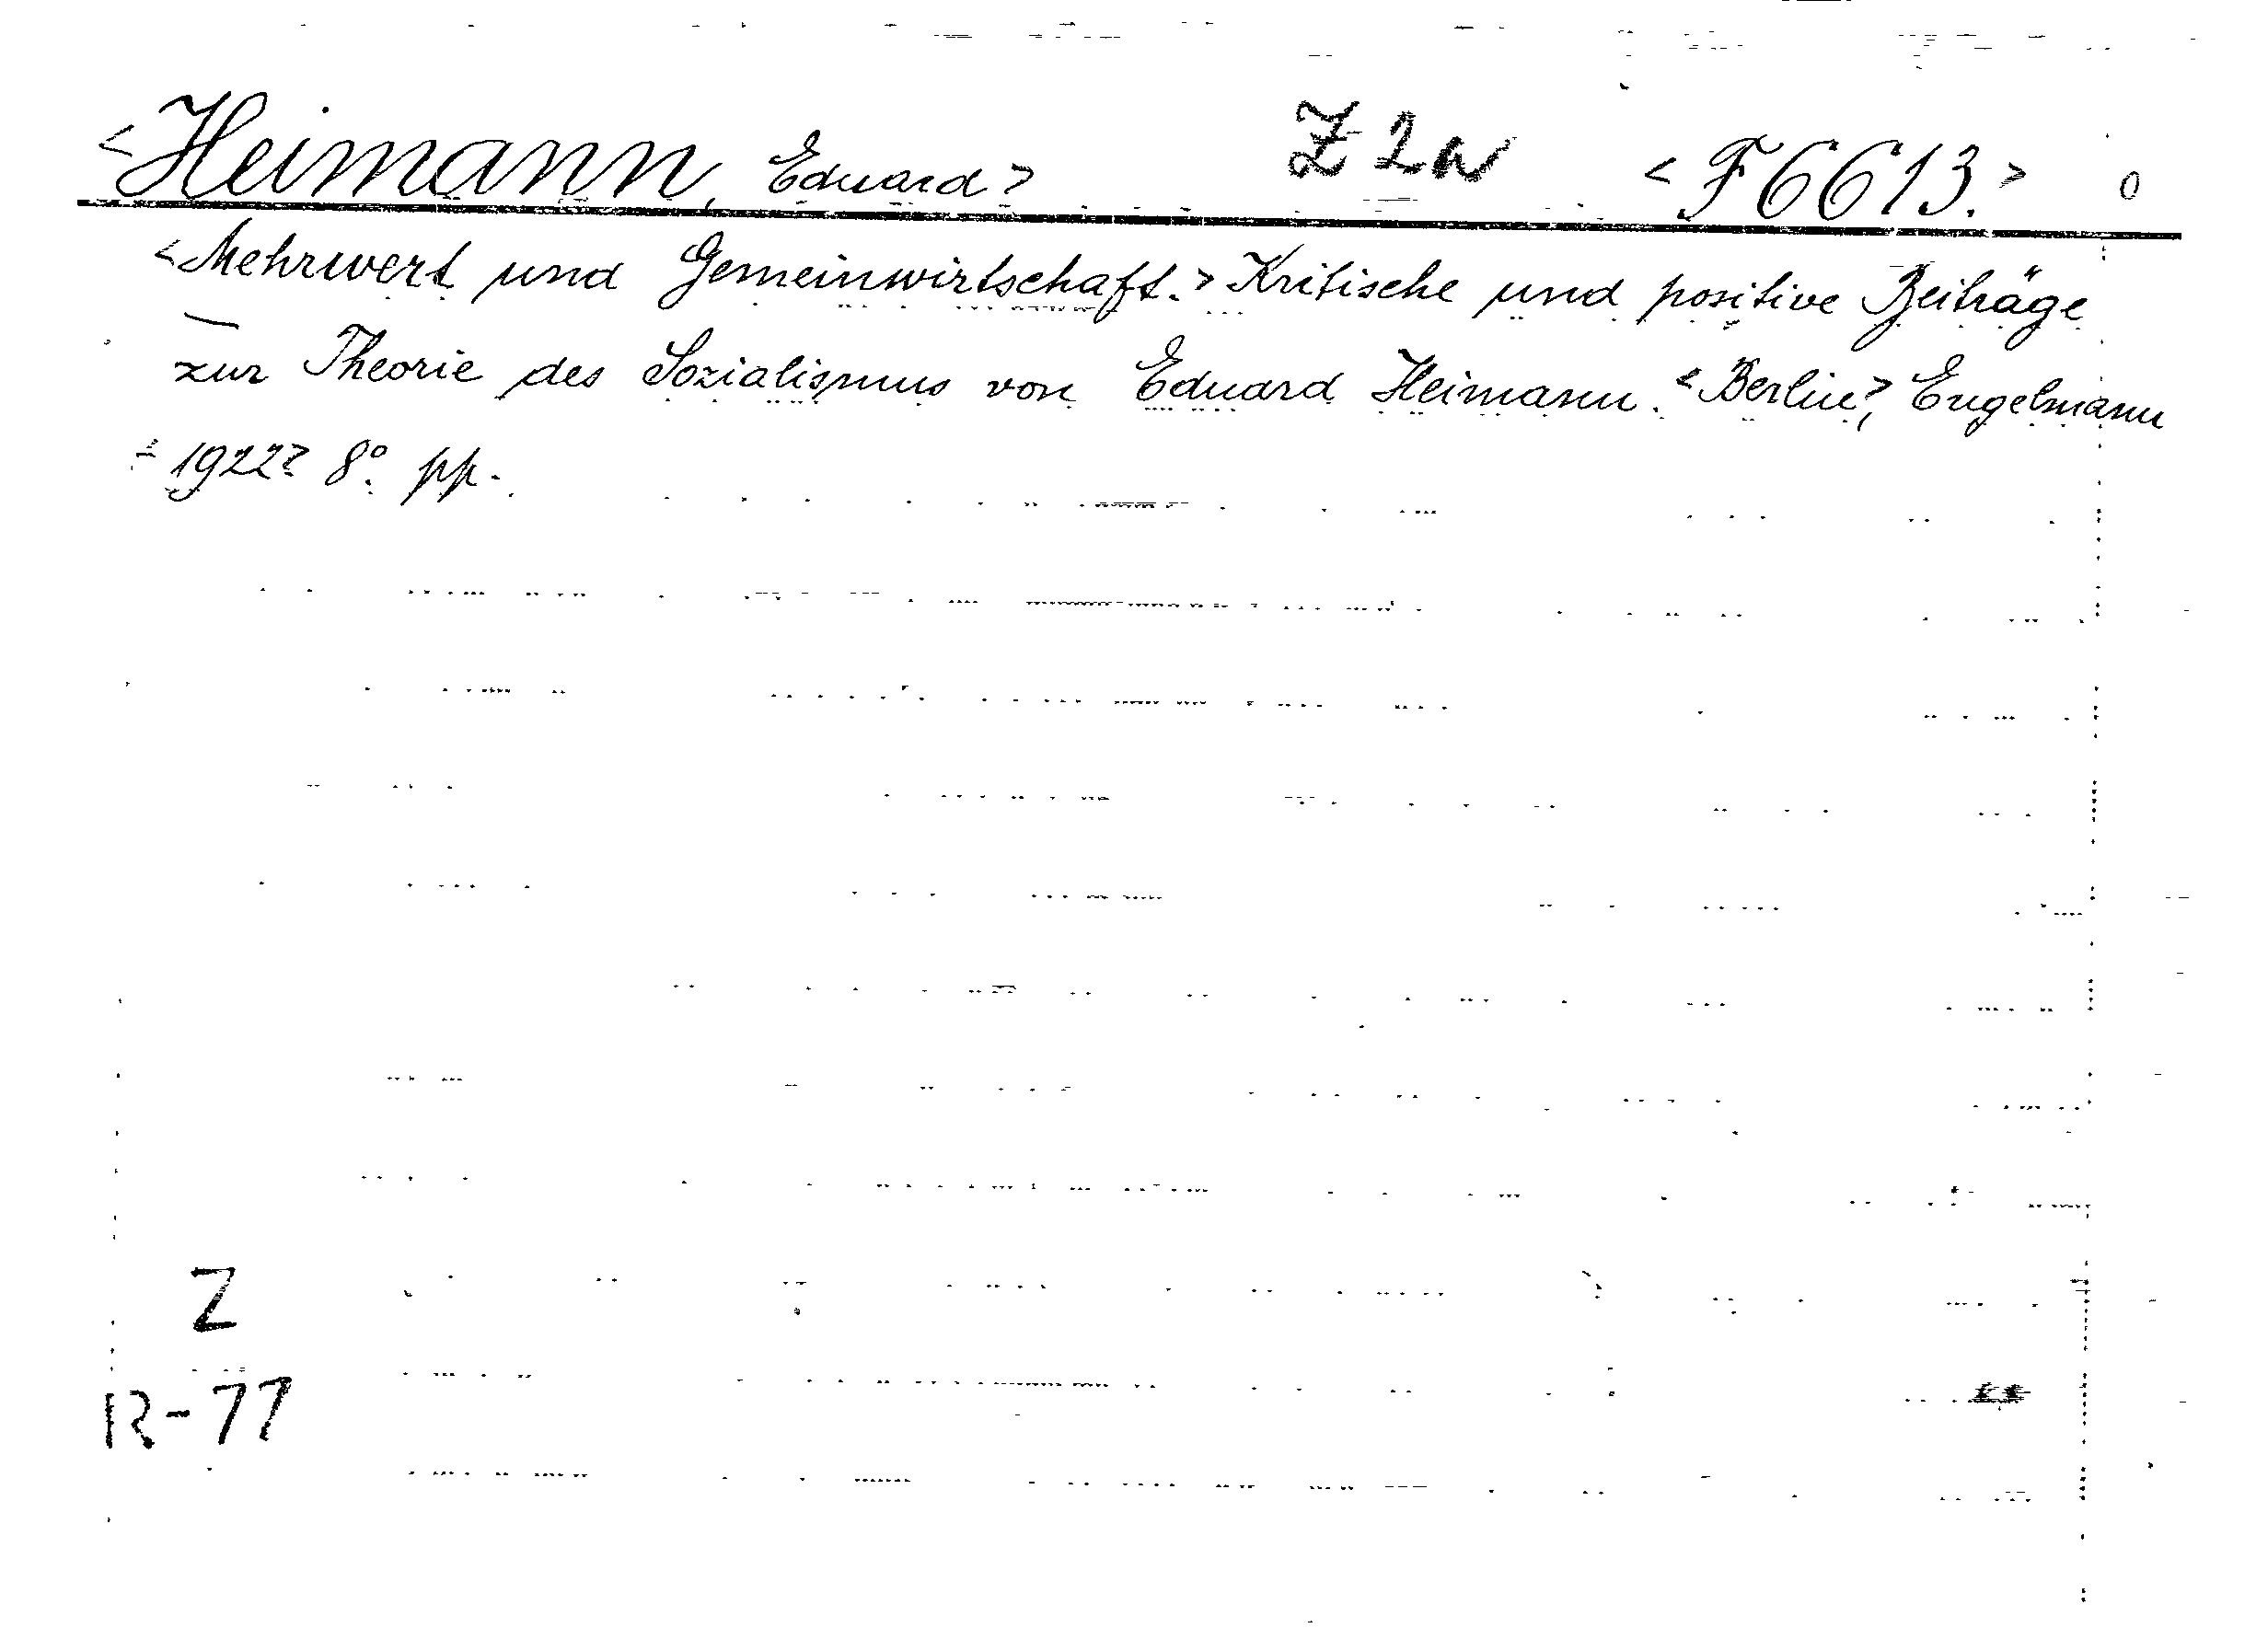 <Heimann, Eduard> Z 2 w <F6613.> 0
<Mehrwert und Gemeinwirtschaft.> Kritische und positive Beiträge
zur Theorie des Sozialismus von Eduard Heimann. <Berlin>, Engelmann
<1922> 8° pp.
Z
R-77